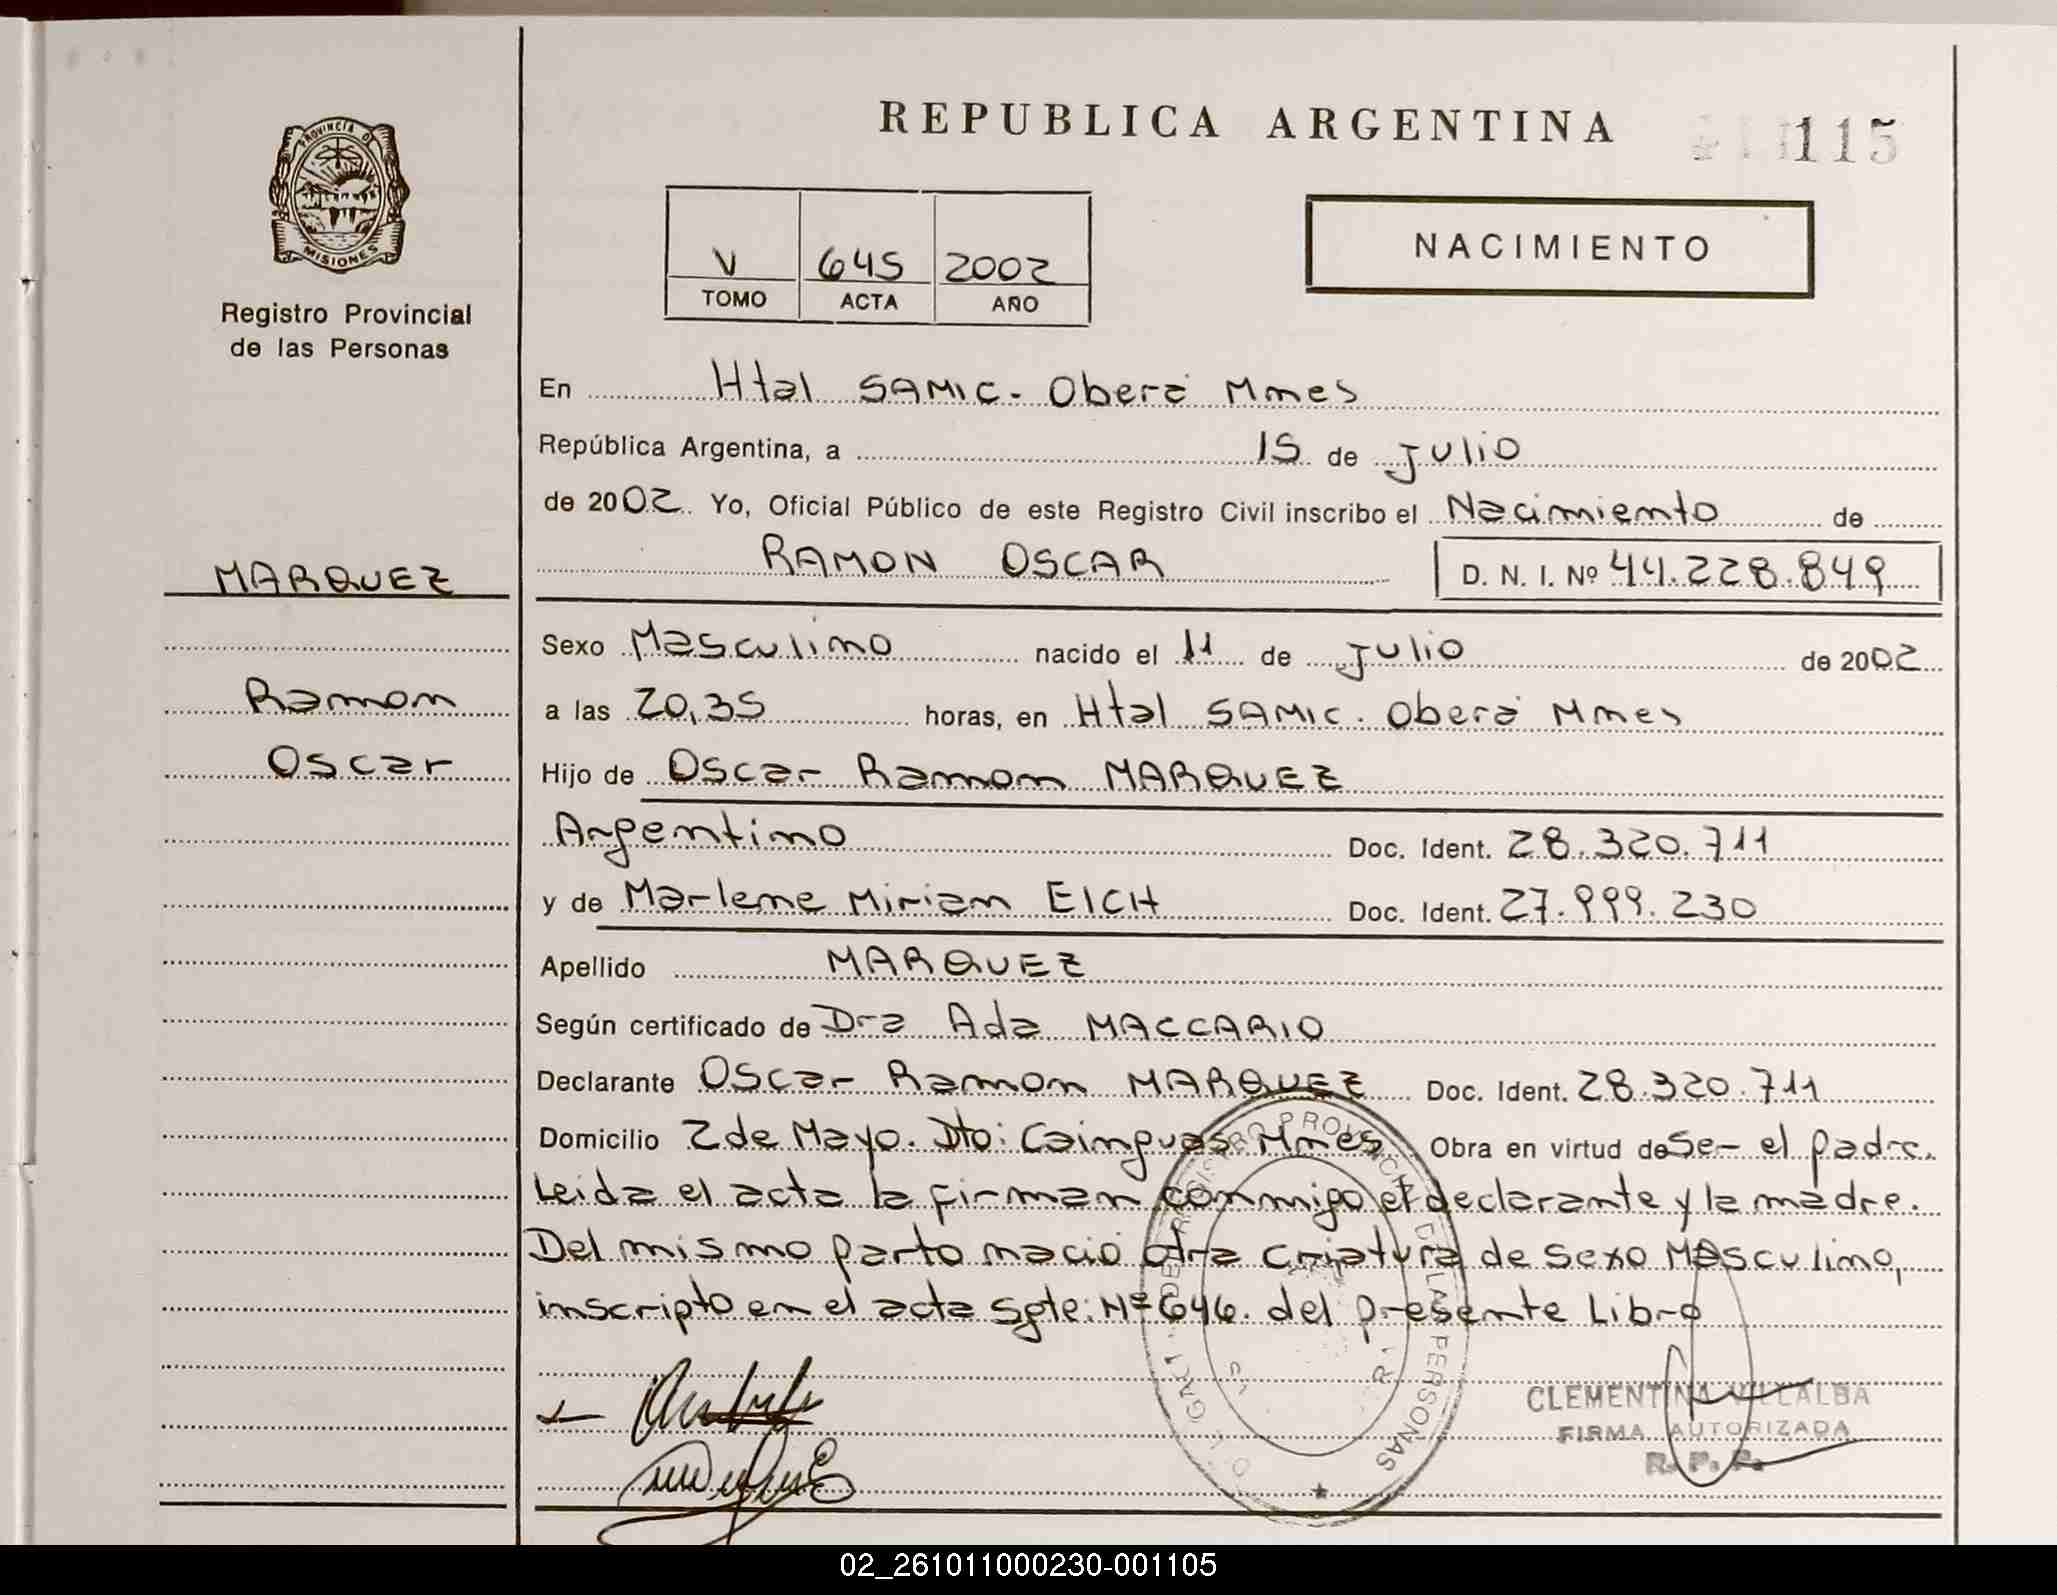 REPUBLICA ARGENTINA
115
PROVINCIA DE
MISIONES
Registro Provincial
de las Personas
V 645 2002
TOMO ACTA AÑO
NACIMIENTO
En Htal SAMIC. Oberá Mnes
República Argentina, a 15 de Julio
de 2002. Yo, Oficial Público de este Registro Civil inscribo el Nacimiento de
RAMON OSCAR D. N. I. Nº 44.228.849
MARQUEZ
Ramon
Oscar
Sexo Masculino nacido el 11 de Julio de 2002
a las 20,35 horas, en Htal SAMIC. Oberá Mnes
Hijo de Oscar Ramon MARQUEZ
Argentino Doc. Ident. 28.320.711
y de Marlene Miriam EICH Doc. Ident. 27.999.230
Apellido MARQUEZ
Según certificado de Dra Ada MACCARIO
Declarante Oscar Ramon MARQUEZ Doc. Ident. 28.320.711
Domicilio 2 de Mayo. Dto: Cainguas Mnes Obra en virtud de Ser el padre.
Leida el acta la firman conmigo el declarante y la madre.
Del mismo parto nació otra criatura de sexo Masculino,
inscripto en el acta sgte: Nº 646. del presente Libro
REGISTRO PROVINCIAL DE LAS PERSONAS
CLEMENTINA VILLALBA
FIRMA AUTORIZADA
R. P. P.
02_261011000230-001105